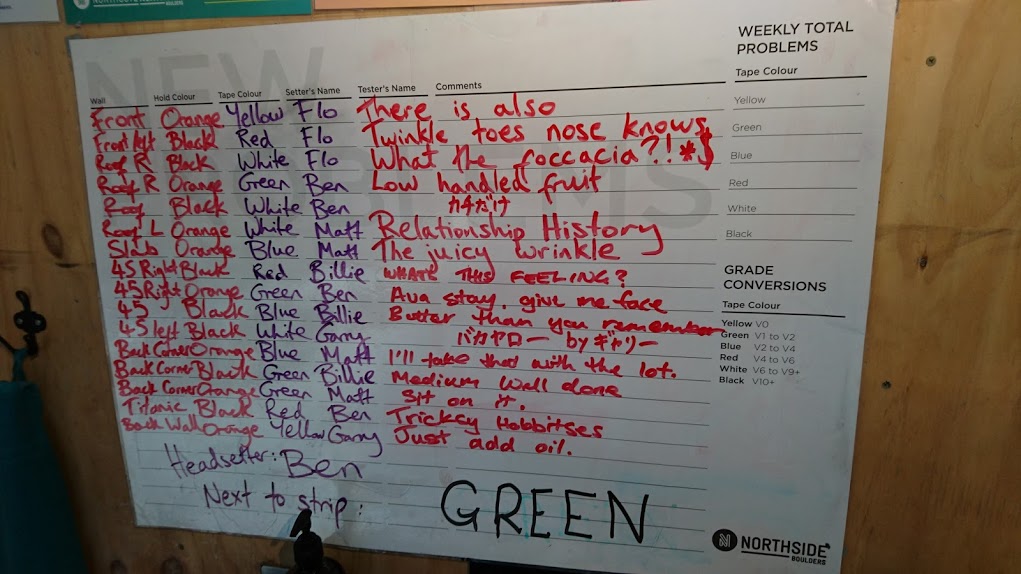 NORTHSIDE
BOULDERS
NEW
PROBLEMS
WEEKLY TOTAL
PROBLEMS
Tape Colour
Yellow
Green
Blue
Red
White
Black
GRADE
CONVERSIONS
Tape Colour
Yellow V0
Green V1 to V2
Blue V2 to V4
Red V4 to V6
White V6 to V9+
Black V10+
Wall Hold Colour Tape Colour Setter's Name Tester's Name Comments
Front Orange Yellow Flo There is also
Front left Black Red Flo Twinkle toes nose knows
Roof R Black White Flo What the foccacia?!!*$
Roof R Orange Green Ben Low handled fruit
Roof Black White Ben カチだけ
Roof L Orange White Matt Relationship History
Slab Orange Blue Matt The juicy wrinkle
45 Right Black Red Billie THIS FEELING?
45 Right Orange Green Ben Ava stay. give me face
45 Black Blue Billie Butter than you remember
45 left Black White Garry バカヤロー by ギャリー
Back Corner Orange Blue Matt I'll take that with the lot.
Back Corner Black Green Billie Medium wall done
Back Corner Orange Green Matt Sit on it.
Titanic Black Red Ben Trickey Hobbitses
Back Wall Orange Yellow Garry Just add oil.
Headsetter: Ben
Next to strip: GREEN
NORTHSIDE
BOULDERS